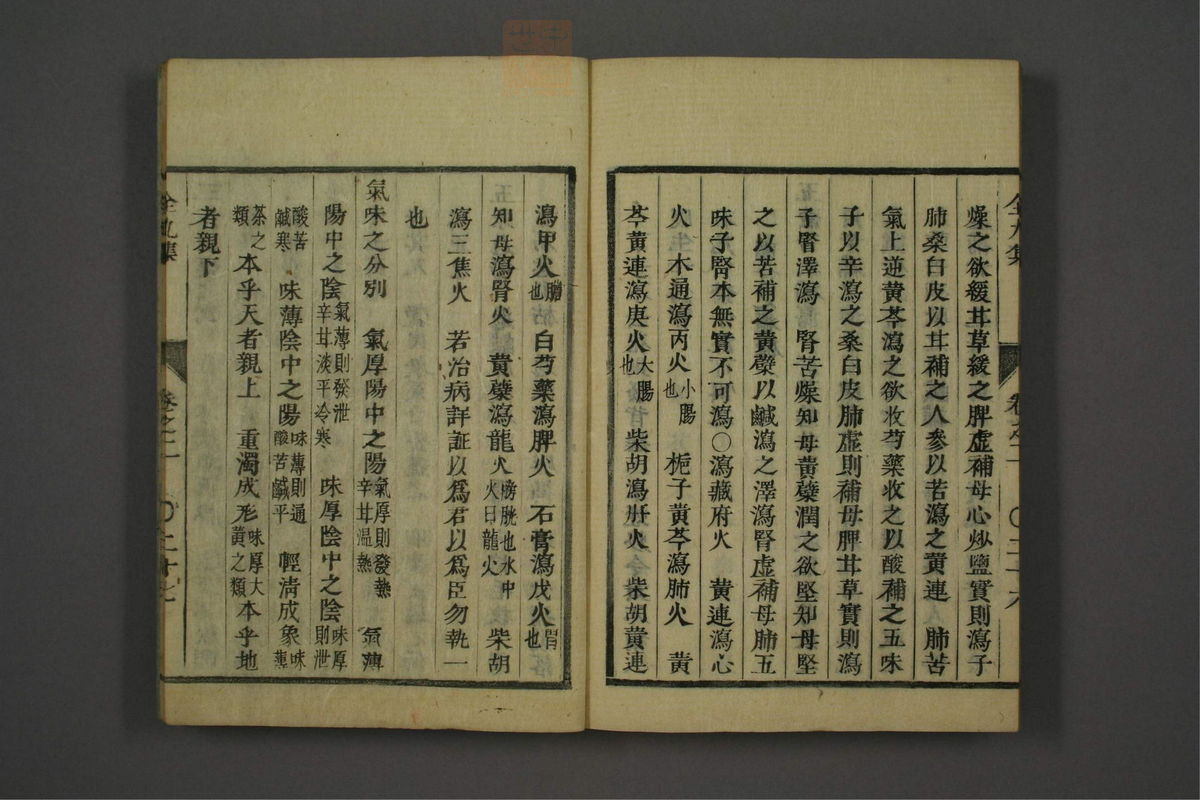 燥之欲緩甘草緩之脾虛補母心炒鹽實則瀉子
肺桑白皮以甘補之人參以苦瀉之黃連　肺苦
氣上逆黃芩瀉之欲收芍藥收之以酸補之五味
子以辛瀉之桑白皮肺虛則補母脾甘草實則瀉
子腎澤瀉　腎苦燥知母黃蘗潤之欲堅知母堅
之以苦補之黃蘗以鹹瀉之澤瀉腎虛補母肺五
味子腎本無實不可瀉〇瀉藏府火　黃連瀉心
火　木通瀉丙火小腸也　梔子黃芩瀉肺火　黃
芩黃連瀉庚火大腸也　柴胡瀉肝火　柴胡黃連
瀉甲火膽也　白芍藥瀉脾火　石膏瀉戊火胃也
知母瀉腎火　黃蘗瀉龍火膀胱也水中火曰龍火　柴胡
瀉三焦火　若治病詳証以爲君以爲臣勿執一
也
氣味之分別　氣厚陽中之陽氣厚則發熱辛甘温熱　氣薄
陽中之陰氣薄則發泄辛甘淡平冷寒　味厚陰中之陰味厚則泄
酸苦鹹寒　味薄陰中之陽味薄則通酸苦鹹平　輕清成象味薄
茶之類本乎天者親上　重濁成形味厚大黃之類本乎地
者親下
卷之二　〇二十六
卷之二　〇二十七